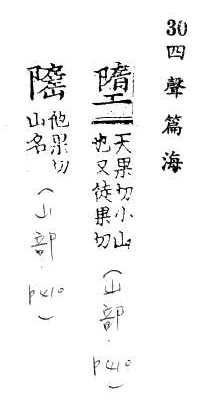 30 四聲篇海
天果切小山
也又徒果切
(山部.P410)
他果切
山名
(山部.P410)